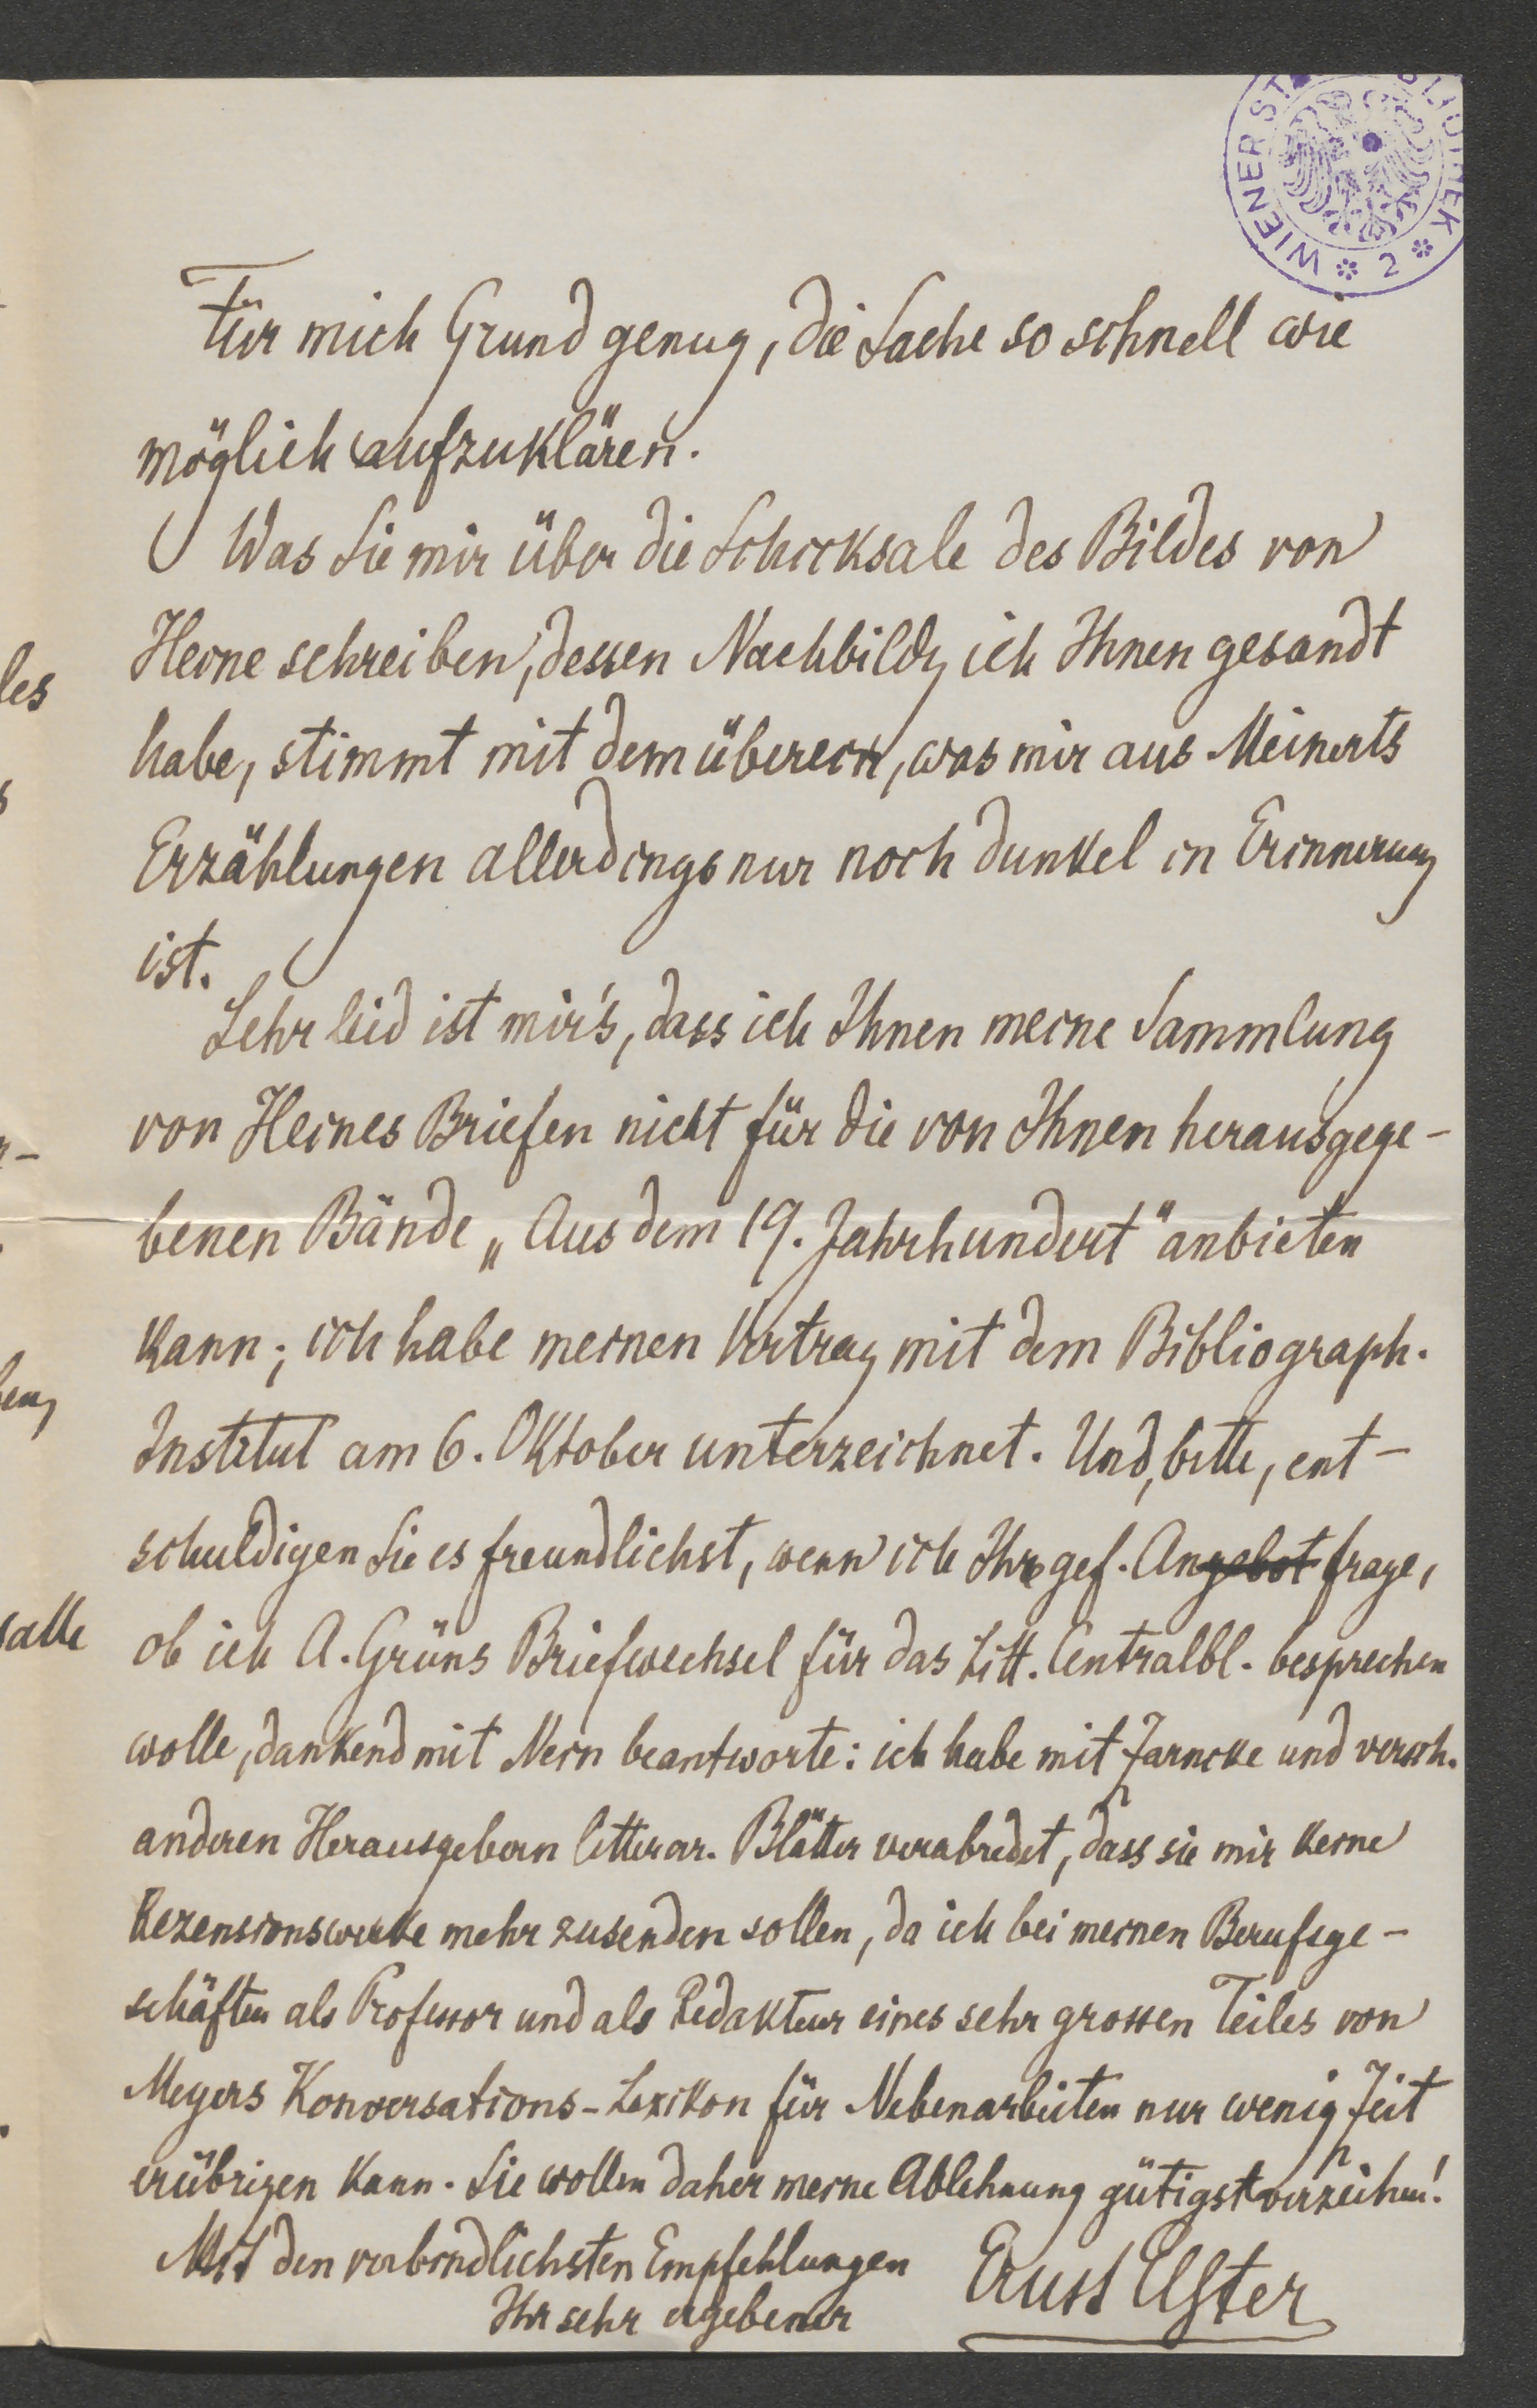 WIENER ST BLIOTHEK * 2 *
Für mich Grund genug, die Sache so schnell wie
möglich aufzuklären.
Was Sie mir über die Schicksale des Bildes von
Heine schreiben, dessen Nachbildg ich Ihnen gesandt
habe, stimmt mit dem überein, was mir aus Meinerts
Erzählungen allerdings nur noch dunkel in Erinnerung
ist.
Sehr leid ist mir's, dass ich Ihnen meine Sammlung
von Heines Briefen nicht für die von Ihnen herausgege-
benen Bände „Aus dem 19. Jahrhundert" anbieten
kann; ich habe meinen Vertrag mit dem Bibliograph.
Institut am 6. Oktober unterzeichnet. Und, bitte, ent-
schuldigen Sie es freundlichst, wenn ich Ihre gef. Angebot frage,
ob ich A. Grüns Briefwechsel für das Litt. Centralbl. besprechen
wolle, dankend mit Nein beantworte: ich habe mit Zarncke und versch.
anderen Herausgebern litterar. Blätter verabredet, dass sie mir keine
Rezensionswerke mehr zusenden sollen, da ich bei meinen Berufsge-
schäften als Professor und als Redakteur eines sehr grossen Teiles von
Meyers Konversations-Lexikon für Nebenarbeiten nur wenig Zeit
erübrigen kann. Sie wollen daher meine Ablehnung gütigst verzeihen!
Mit den verbindlichsten Empfehlungen
Ihr sehr ergebener
Ernst Elster
les
n-
salle